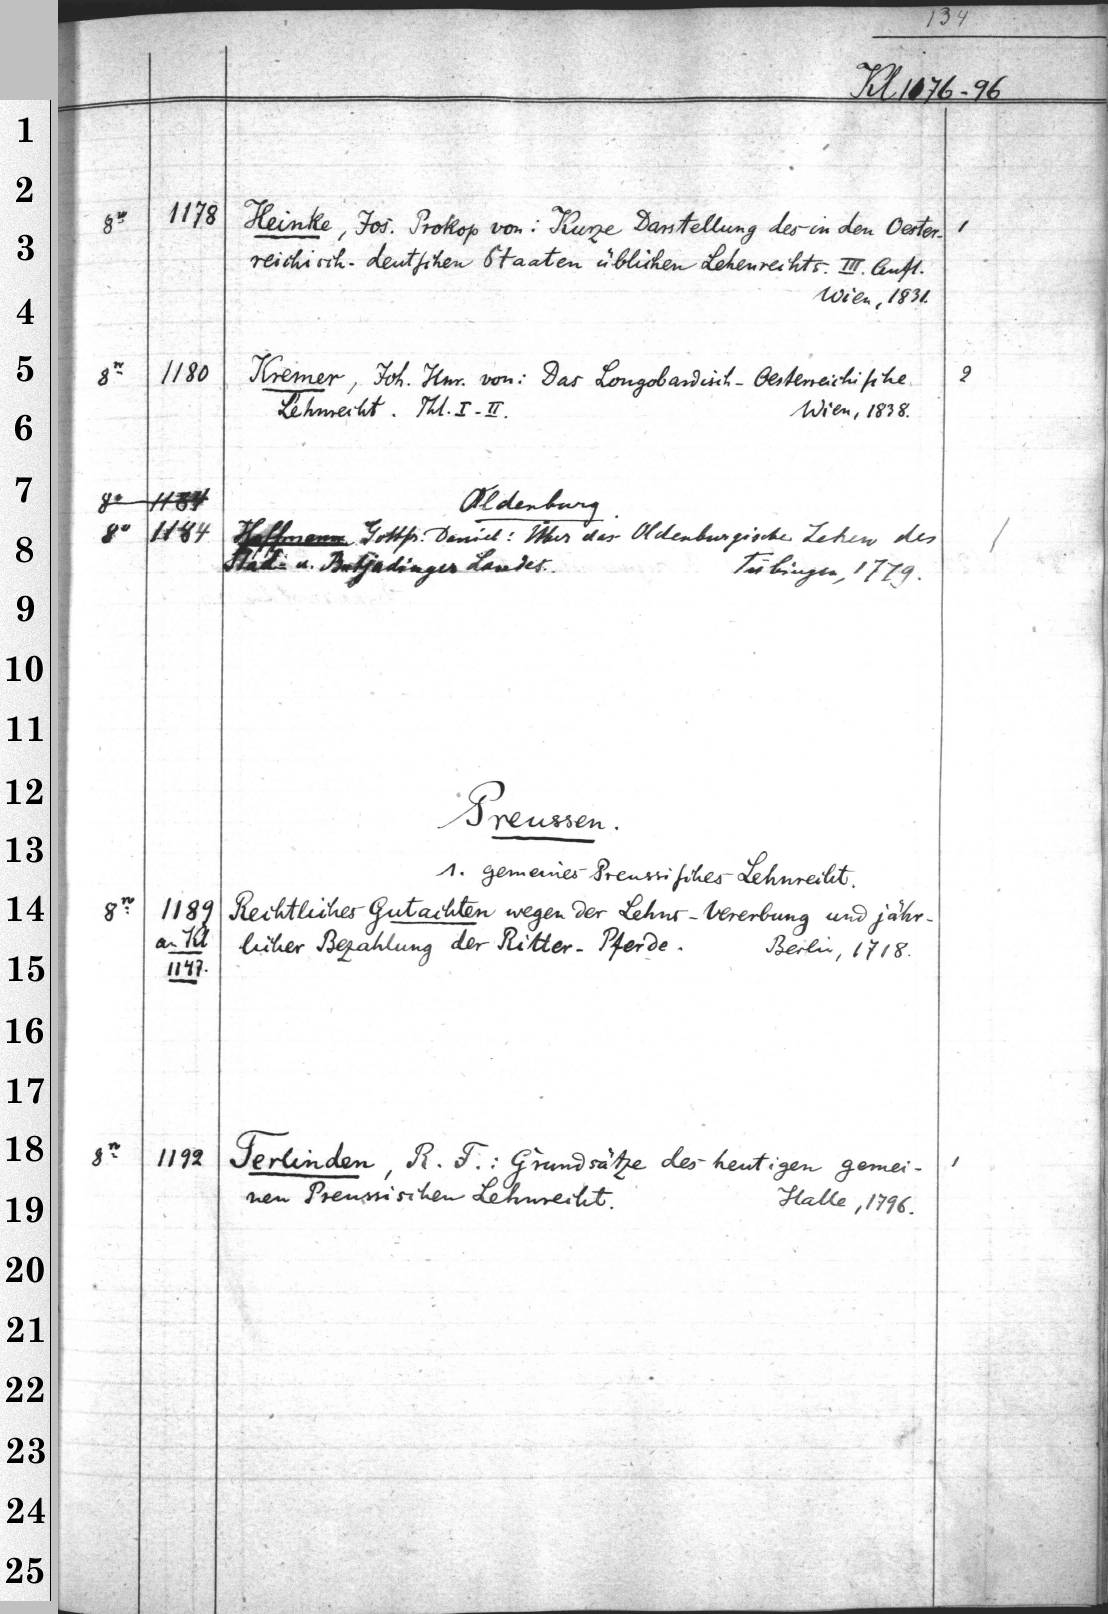 134
Kl 1076-96
8° 1178 Heinke, Jos. Prokop von: Kurze Darstellung des in den Oester- 1
reichisch-deutschen Staaten üblichen Lehenrechts. III. Aufl.
Wien, 1831.
8° 1180 Kremer, Joh. Hnr. von: Das Longobardisch-Oesterreichische 2
Lehnrecht. Thl. I-II. Wien, 1838.
8° 1184 Oldenburg.
8° 1184 Hoffmann Gottfr. Daniel: Über das Oldenburgische Lehen des 1
Stad- u. Butjadinger Landes. Tübingen, 1779.
Preussen.
1. gemeines Preussisches Lehnrecht.
8° 1189 Rechtliches Gutachten wegen der Lehns-Vererbung und jähr-
an Kl licher Bezahlung der Ritter-Pferde. Berlin, 1718.
1147.
8° 1192 Terlinden, R. F.: Grundsätze des heutigen gemei- 1
nen Preussischen Lehnrecht. Halle, 1796.
1
2
3
4
5
6
7
8
9
10
11
12
13
14
15
16
17
18
19
20
21
22
23
24
25